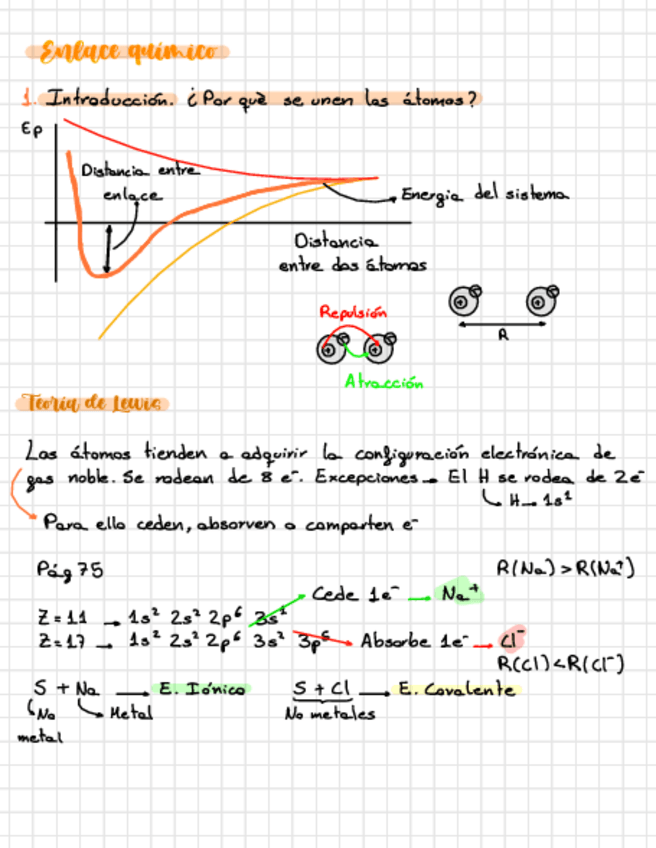 Enlace químico
1. Introducción. ¿Por què se unen los átomos?
Ep
Distancia entre
enlace
Energia del sistema
Distancia
entre dos átomos
R
Repulsión
Atracción
Teoría de Lewis
Los átomos tienden a adquirir la configuración electrónica de
gas noble. Se rodean de 8 e⁻. Excepciones → El H se rodea de 2e⁻
H → 1s¹
Para ello ceden, absorven o comparten e⁻
Pág 75
R(Na) > R(Na⁺)
Cede 1e⁻ → Na⁺
Z=11 → 1s² 2s² 2p⁶ 3s¹
Z=17 → 1s² 2s² 2p⁶ 3s² 3p⁵ → Absorbe 1e⁻ → Cl⁻
R(Cl) < R(Cl⁻)
S + Na → E. Iónico S + Cl → E. Covalente
No Metal No metales
metal